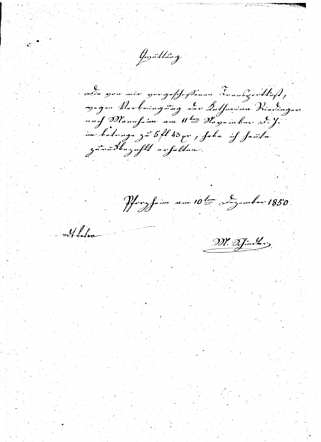 Quittung
die von mir vorgeschossenen Transportkosten,
wegen Verbringung der Katharina Riedinger
nach Mannheim am 11ten November d. J.
im betrage zu 5 fl 43 xr, habe ich heute
zurückbezahlt erhalten.
Pforzheim am 10ten Dezember 1850
M. Schuster